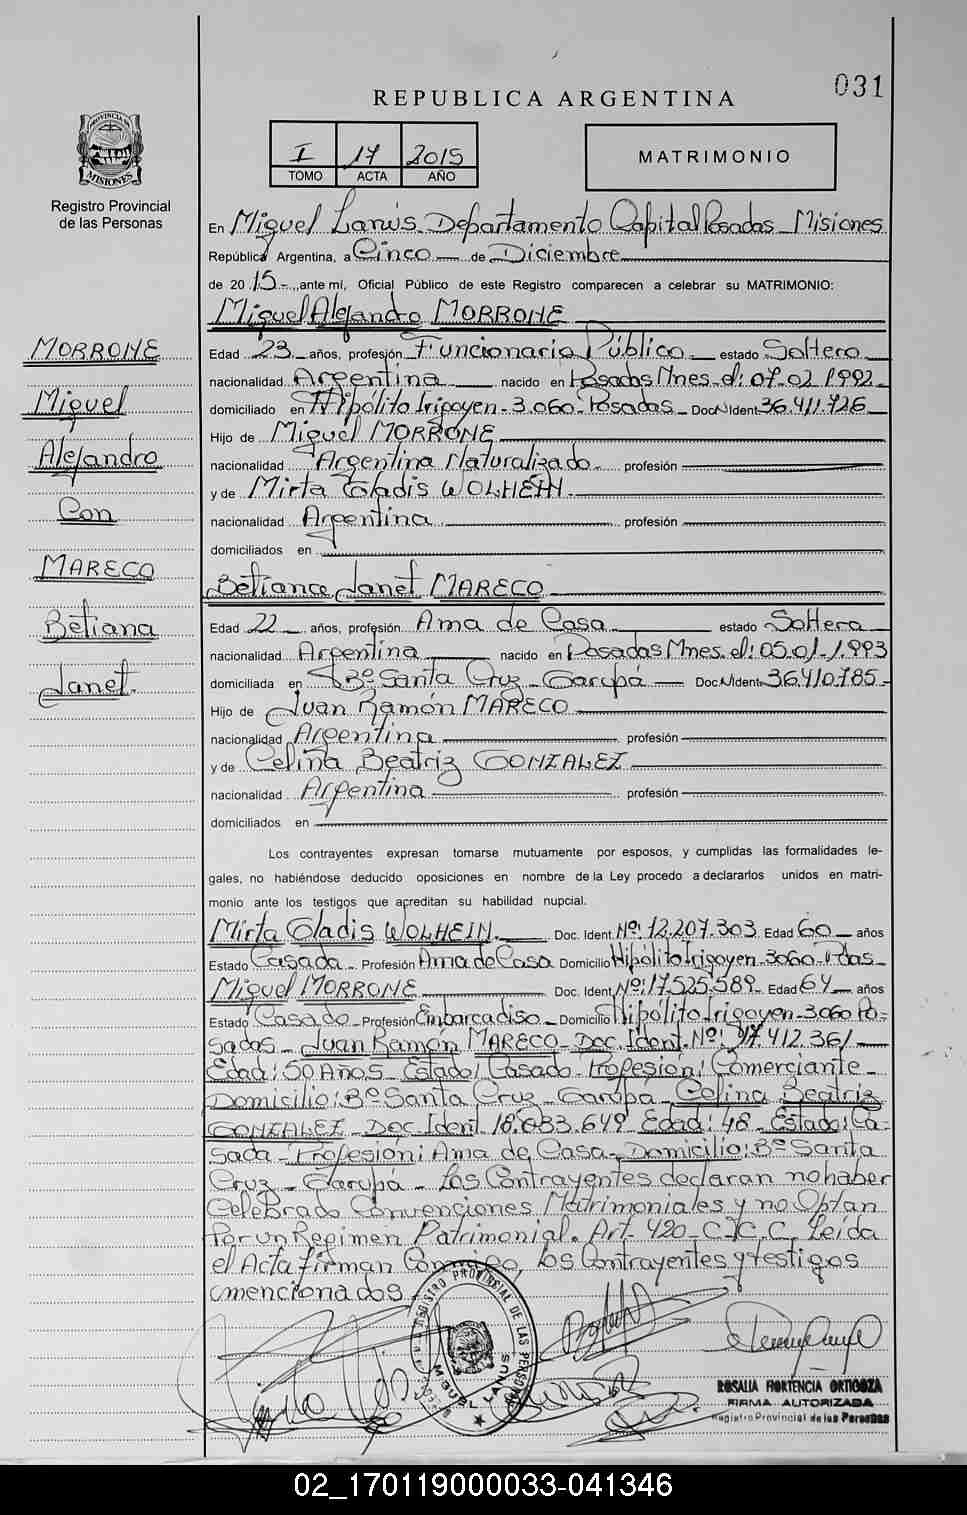 031
REPUBLICA ARGENTINA
PROVINCIA DE MISIONES
Registro Provincial
de las Personas
I 17 2015
TOMO ACTA AÑO
MATRIMONIO
En Miguel Lanús Departamento Capital Posadas Misiones
República Argentina, a Cinco de Diciembre
de 2015 ,ante mí, Oficial Público de este Registro comparecen a celebrar su MATRIMONIO:
Miguel Alejandro MORRONE
MORRONE
Miguel
Alejandro
Con
MARECO
Betiana
Janet.
Edad 23 años, profesión Funcionario Público estado Soltero
nacionalidad Argentina nacido en Posadas Mnes. el: 07-02-1992
domiciliado en Hipólito Irigoyen - 3.060 - Posadas - Doc. Ident. 36.411.726
Hijo de Miguel MORRONE
nacionalidad Argentina Naturalizado profesión
y de Mirta Gladis WOLHEIN
nacionalidad Argentina profesión
domiciliados en
Betiana Janet MARECO
Edad 22 años, profesión Ama de Casa estado Soltera
nacionalidad Argentina nacido en Posadas Mnes. el: 05-01-1993
domiciliada en Bº Santa Cruz - Garupá Doc. Ident. 36.410.785
Hijo de Juan Ramón MARECO
nacionalidad Argentina profesión
y de Celina Beatriz GONZALEZ
nacionalidad Argentina profesión
domiciliados en
Los contrayentes expresan tomarse mutuamente por esposos, y cumplidas las formalidades le-
gales, no habiéndose deducido oposiciones en nombre de la Ley procedo a declararlos unidos en matri-
monio ante los testigos que acreditan su habilidad nupcial.
Mirta Gladis WOLHEIN Doc. Ident. Nº: 12.207.303 Edad 60 años
Estado Casada Profesión Ama de Casa Domicilio Hipólito Irigoyen - 3060 - Pdas -
Miguel MORRONE Doc. Ident. Nº: 17.525.589 Edad 64 años
Estado Casado Profesión Embarcadiso Domicilio Hipólito Irigoyen - 3060 Po-
sadas - Juan Ramón MARECO - Doc. Ident. Nº: 17.412.361
Edad: 50 Años - Estado: Casado - Profesion: Comerciante -
Domicilio: Bº Santa Cruz - Garupá - Celina Beatriz
GONZALEZ - Doc. Ident. 18.833.649 Edad: 48 - Estado: Ca-
sada - Profesión: Ama de Casa - Domicilio: Bº Santa
Cruz - Garupá - Los Contrayentes declaran no haber
Celebrado Convenciones Matrimoniales y no Optan
Por un Regimen Patrimonial. Art. 420 - C.C.C. Leída
el Acta firman Conmigo, los Contrayentes y testigos
mencionados.
REGISTRO PROVINCIAL DE LAS PERSONAS
MIGUEL LANUS
ROSALIA HORTENCIA ORTIGOZA
FIRMA AUTORIZADA
Registro Provincial de las Personas
02_170119000033-041346